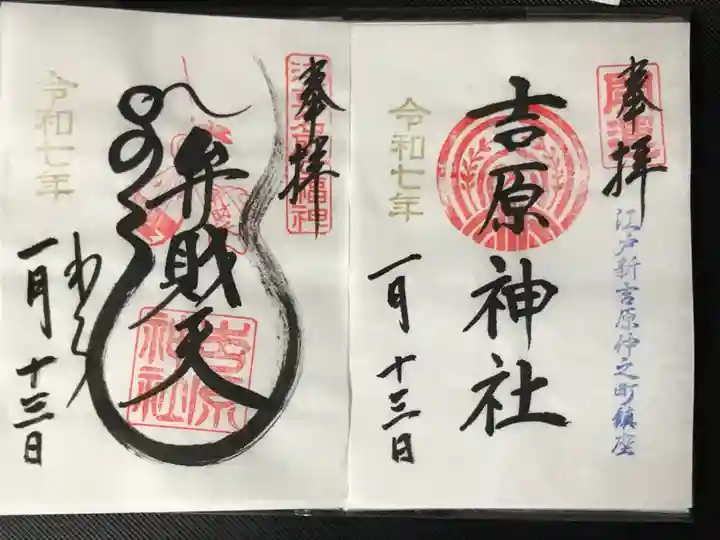 奉拝
開運
江戸新吉原仲之町鎮座
吉原神社
令和七年
一月十三日
奉拝
浅草名所七福神
弁財天
吉原
神社
令和七年
一月十三日